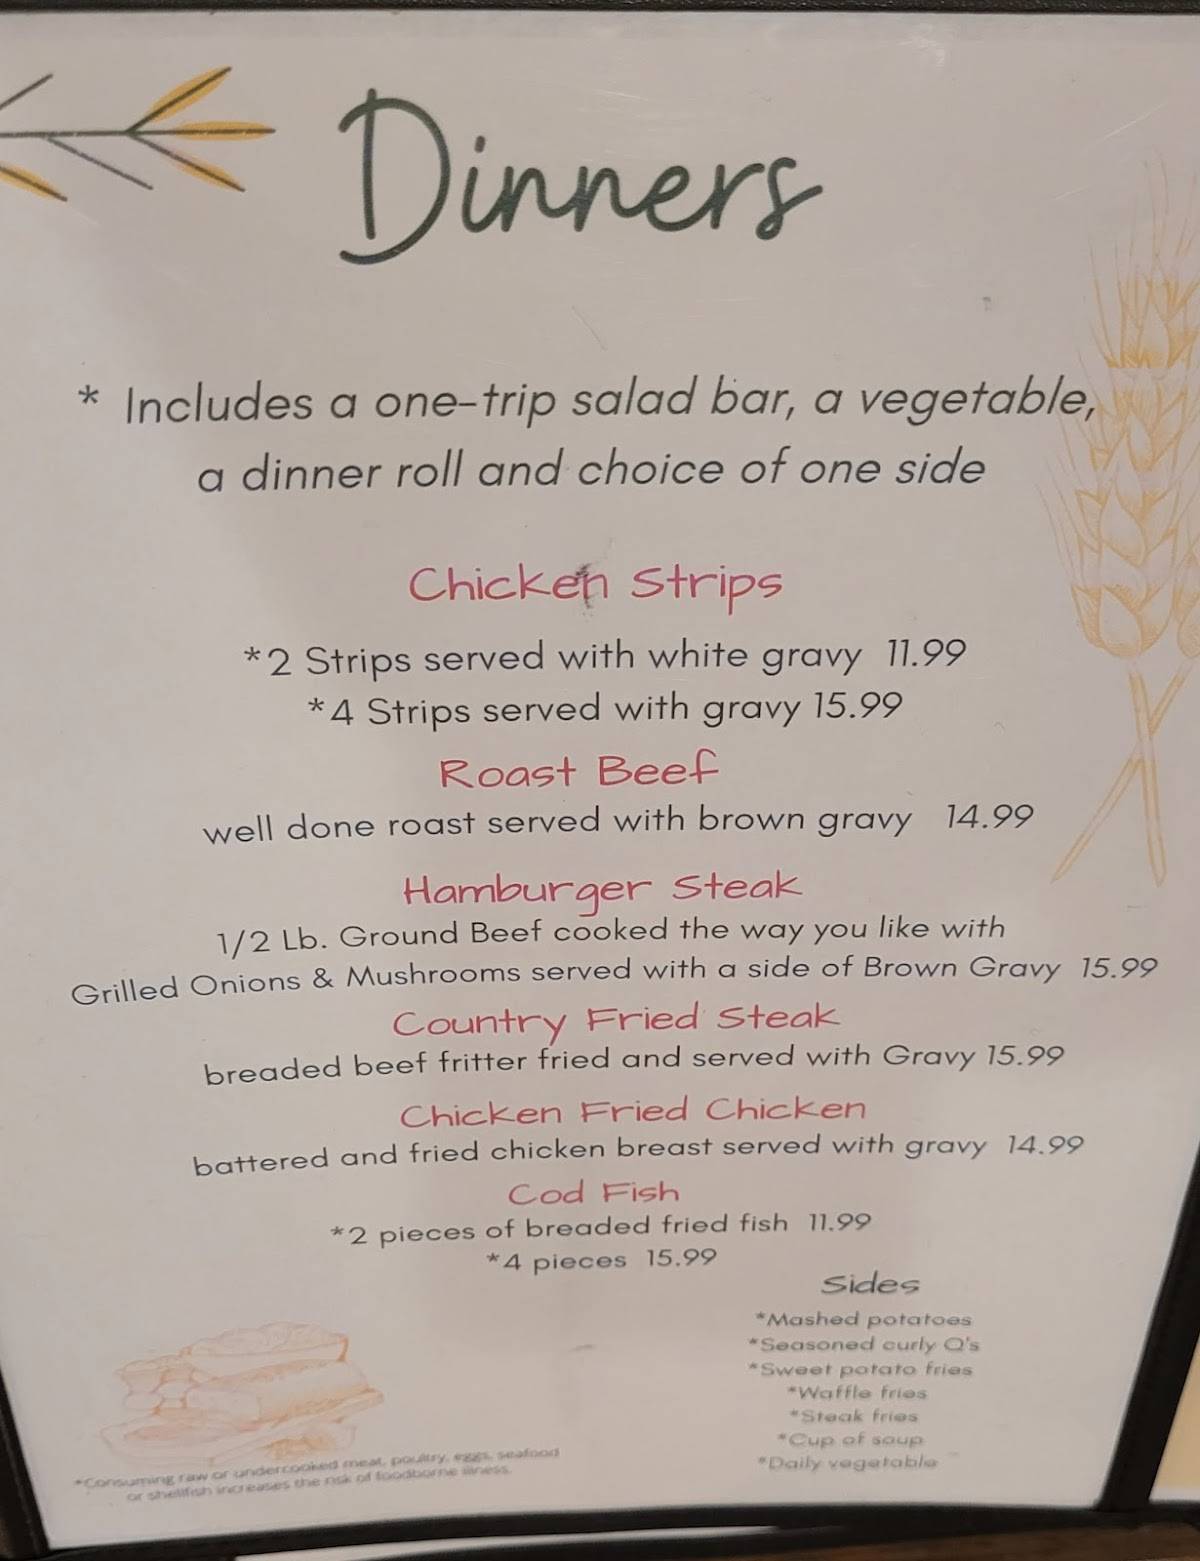 Dinners
* Includes a one-trip salad bar, a vegetable,
a dinner roll and choice of one side
Chicken Strips
*2 Strips served with white gravy 11.99
*4 Strips served with gravy 15.99
Roast Beef
well done roast served with brown gravy 14.99
Hamburger Steak
1/2 Lb. Ground Beef cooked the way you like with
Grilled Onions & Mushrooms served with a side of Brown Gravy 15.99
Country Fried Steak
breaded beef fritter fried and served with Gravy 15.99
Chicken Fried Chicken
battered and fried chicken breast served with gravy 14.99
Cod Fish
*2 pieces of breaded fried fish 11.99
*4 pieces 15.99
Sides
*Mashed potatoes
*Seasoned curly Q's
*Sweet potato fries
*Waffle fries
*Steak fries
*Cup of soup
*Daily vegetable
*Consuming raw or undercooked meat, poultry, eggs, seafood
or shellfish increases the risk of foodborne illness.